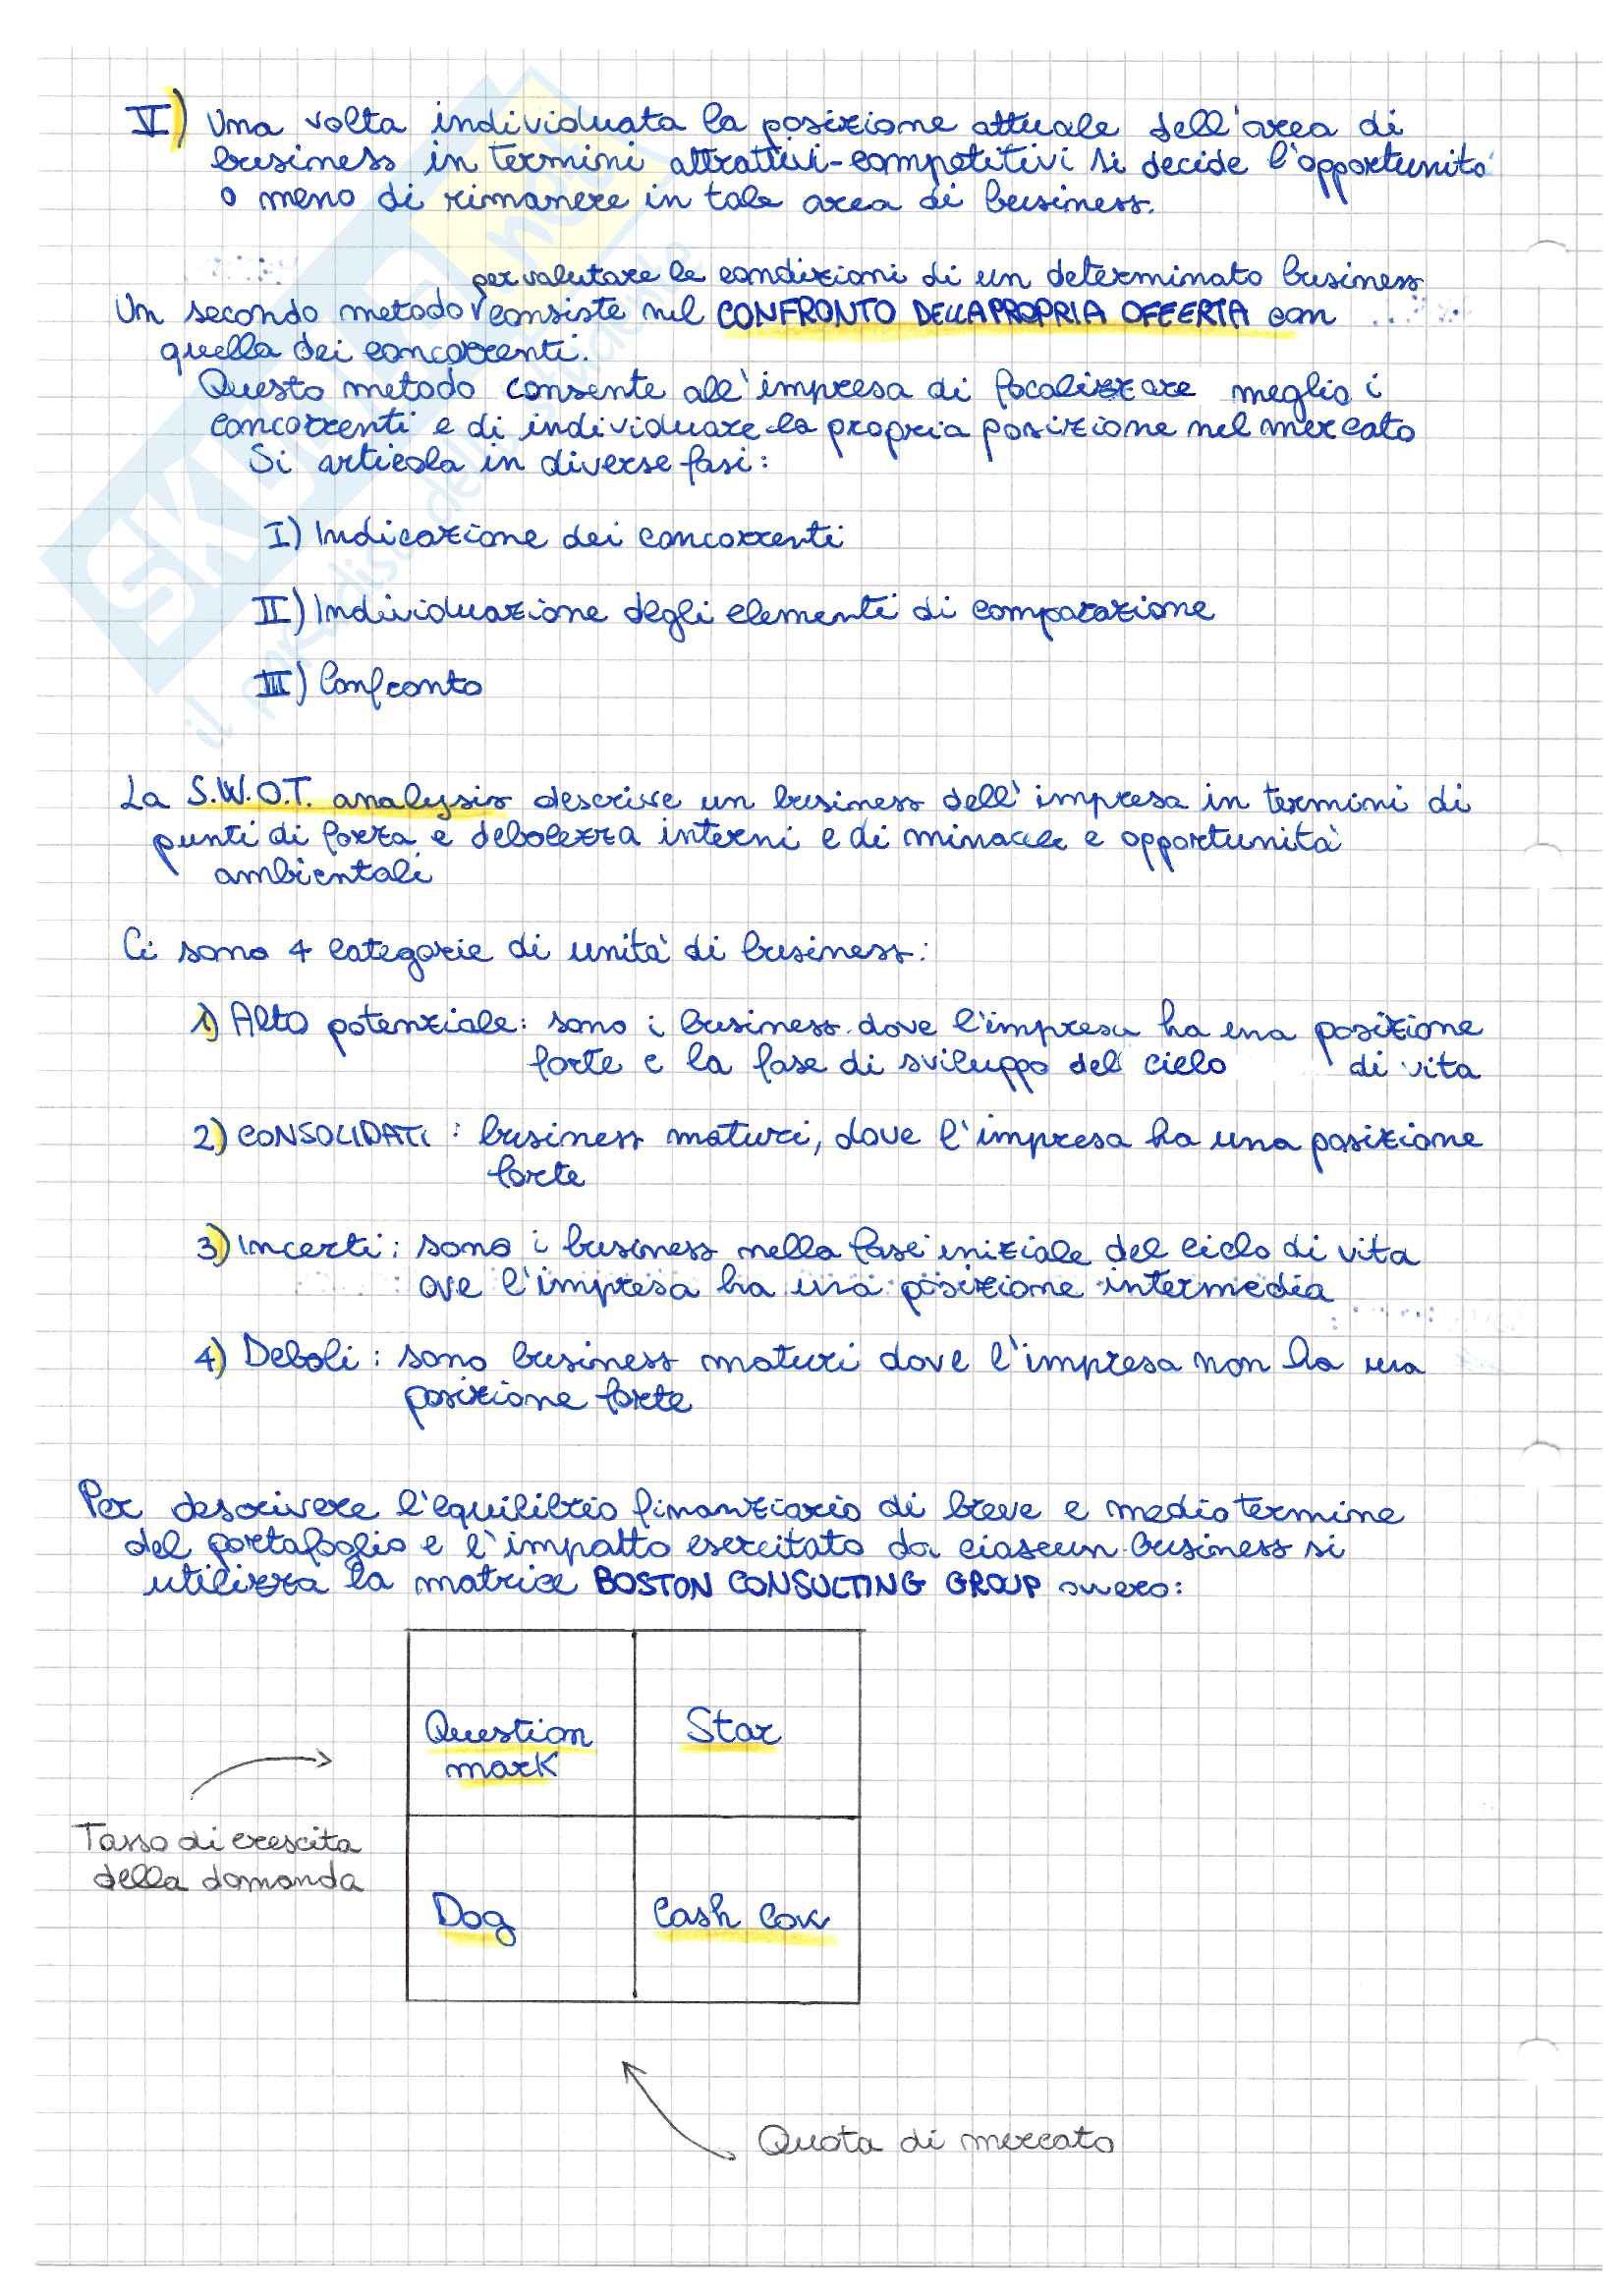 V) Una volta individuata la posizione attuale dell'area di
business in termini attrattivi-competitivi si decide l'opportunità
o meno di rimanere in tale area di business.
per valutare le condizioni di un determinato business
Un secondo metodo consiste nel CONFRONTO DELLA PROPRIA OFFERTA con
quella dei concorrenti.
Questo metodo consente all'impresa di focalizzare meglio i
concorrenti e di individuare la propria posizione nel mercato
Si articola in diverse fasi:
I) Indicazione dei concorrenti
II) Individuazione degli elementi di comparazione
III) Confronto
La S.W.O.T. analysis descrive un business dell'impresa in termini di
punti di forza e debolezza interni e di minacce e opportunità
ambientali
Ci sono 4 categorie di unità di business:
1) Alto potenziale: sono i business dove l'impresa ha una posizione
forte e la fase di sviluppo del ciclo di vita
2) CONSOLIDATI: business maturi, dove l'impresa ha una posizione
forte
3) Incerti: sono i business nella fase iniziale del ciclo di vita
ove l'impresa ha una posizione intermedia
4) Deboli: sono business maturi dove l'impresa non ha una
posizione forte
Per descrivere l'equilibrio finanziario di breve e medio termine
del portafoglio e l'impatto esercitato da ciascun business si
utilizza la matrice BOSTON CONSULTING GROUP ovvero:
Question
mark
Star
Tasso di crescita
della domanda
Dog
Cash Cow
Quota di mercato